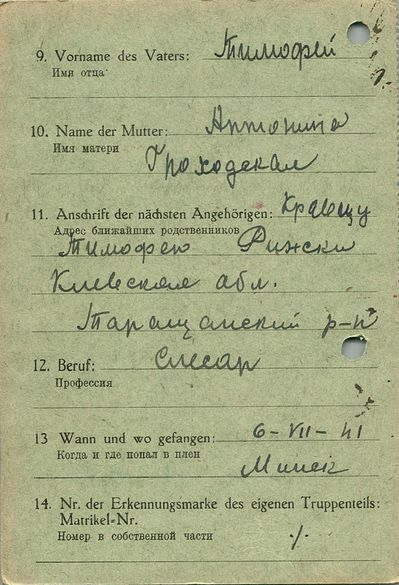 9. Vorname des Vaters: Тимофей
Имя отца
10. Name der Mutter: Антонина
Имя матери
Гроходская
11. Anschrift der nächsten Angehörigen: Кравцу
Адрес ближайших родственников
Тимофею Рижски
Киевская обл.
Таращанский р-н
12. Beruf: Слесар
Профессия
13 Wann und wo gefangen: 6-VII-41
Когда и где попал в плен
Минск
14. Nr. der Erkennungsmarke des eigenen Truppenteils:
Matrikel-Nr.
Номер в собственной части ·/·